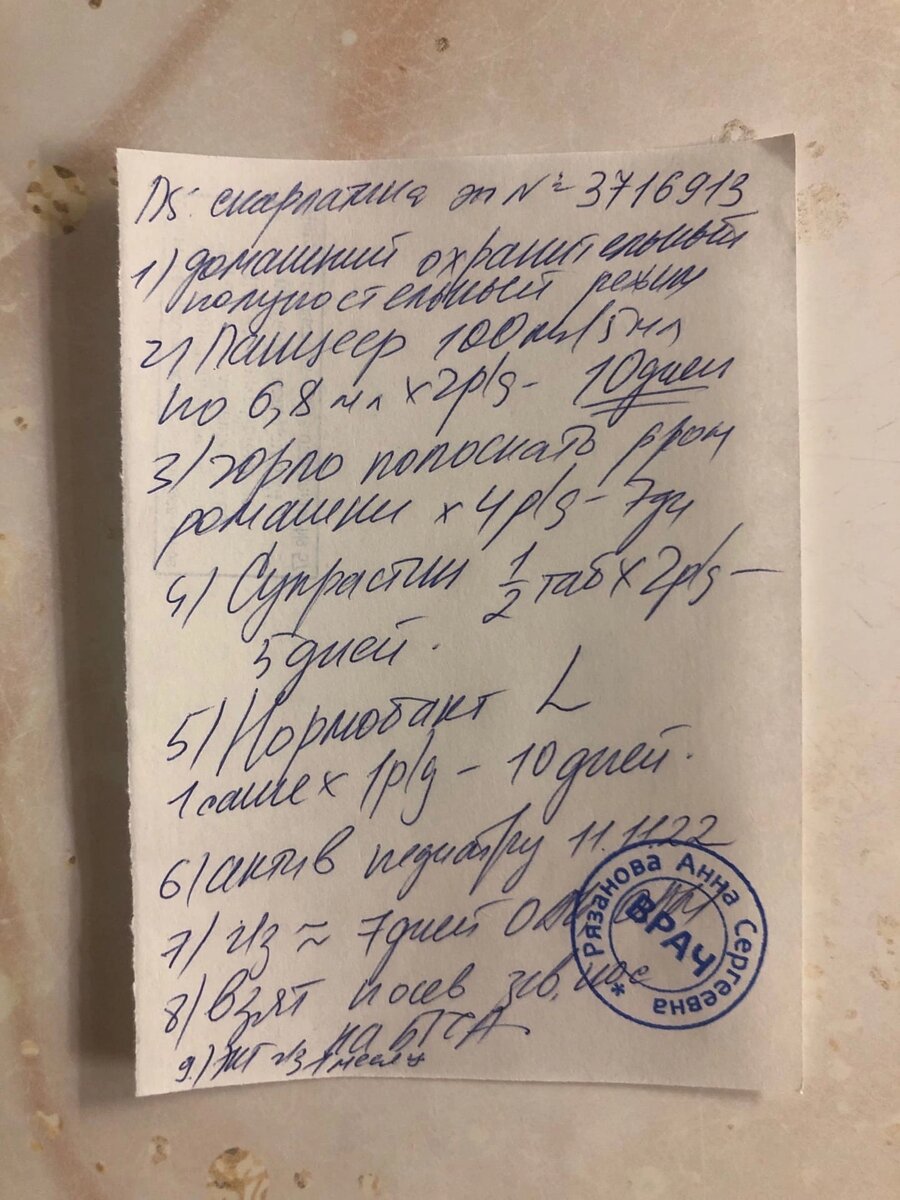 Ds: скарлатина эп № 3716913
1) домашний охранительный
полупостельный режим
2) Панцеф 100мг/5мл
по 6,8 мл x 2р/д - 10 дней
3) горло полоскать р-ром
ромашки x 4 р/д - 7 дн
4) Супрастин 1/2 таб x 2р/д -
5 дней.
5) Нормобакт L
1 саше x 1р/д - 10 дней.
6) актив педиатру 11.11.22
7) ч/з ≈ 7 дней ОАК
8) взят посев зев, нос
на BLСА
9.) ч/з 1 месяц
Рязанова Анна Сергеевна
ВРАЧ